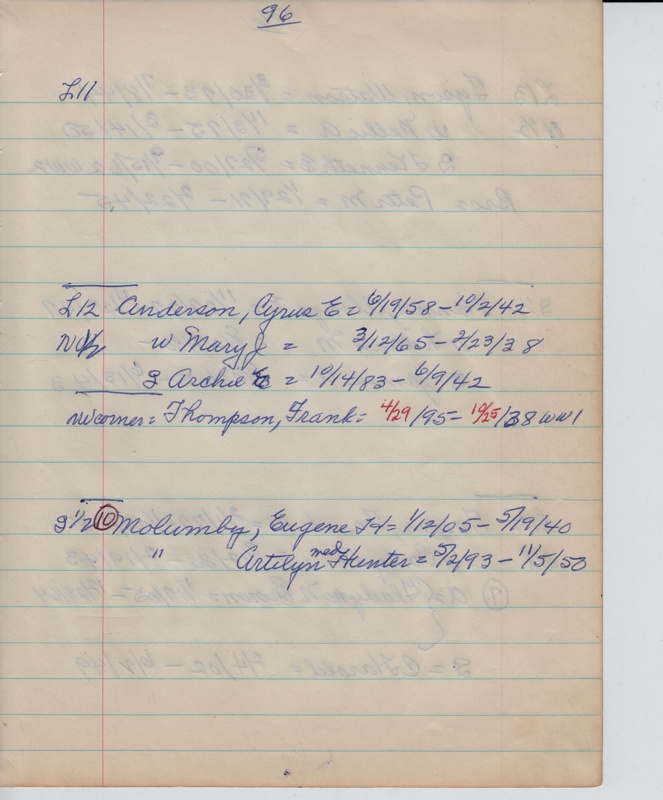 96
L11
L12 Anderson, Cyrus E = 6/19/58 - 10/2/42
N 1/2 w Mary J = 3/12/65 - 2/23/38
S Archie E = 10/14/83 - 6/9/42
NW corner = Thompson, Frank = 4/29/95 - 10/25/38 WW1
S 1/2 10 Molumby, Eugene H = 1/12/05 - 5/19/40
" Artilyn Hunter = 5/2/93 - 11/5/50